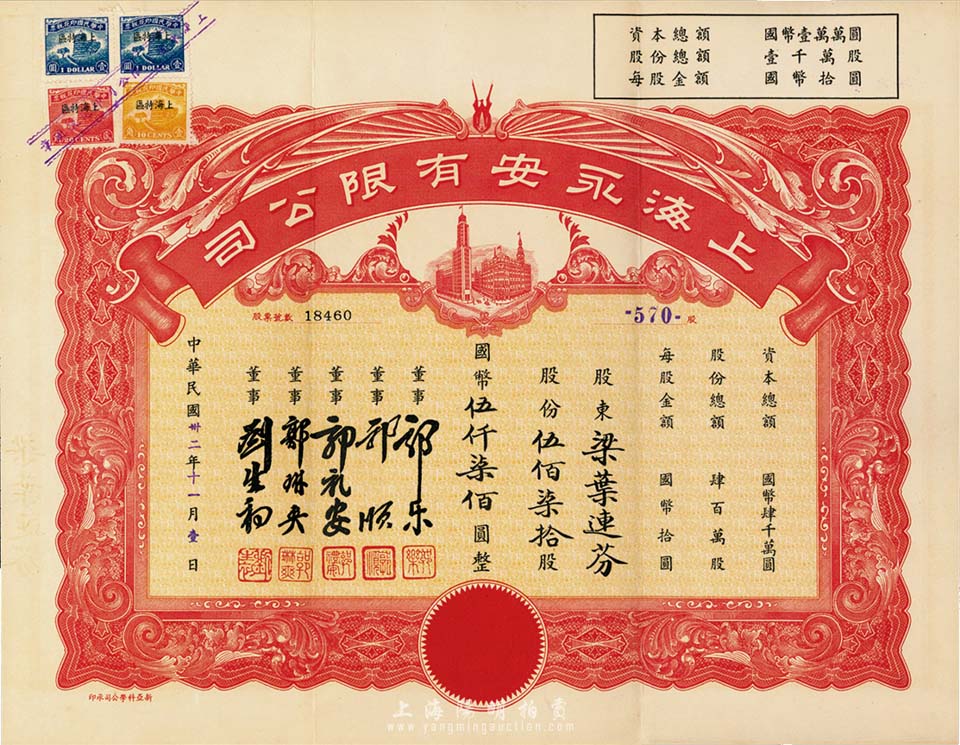 資本總額 國幣壹萬萬圓
股份總額 壹千萬股
每股金額 國幣拾圓
中華民國印花稅票
上海特區
1 DOLLAR
中華民國印花稅票
上海特區
1 DOLLAR
中華民國印花稅票
上海特區
CENTS
中華民國印花稅票
上海特區
10 CENTS
上海永安有限公司
股票號數 18460
-570- 股
資本總額 國幣肆千萬圓
股份總額 肆百萬股
每股金額 國幣拾圓
股東 梁葉連芬
股份伍佰柒拾股
國幣伍仟柒佰圓整
董事 郭乐
董事 郭順
董事 郭礼安
董事 郭琳爽
董事 劉生初
中華民國卅二年十一月壹日
新亞科學公司承印
上海陽明拍賣
www.yangmingauction.com